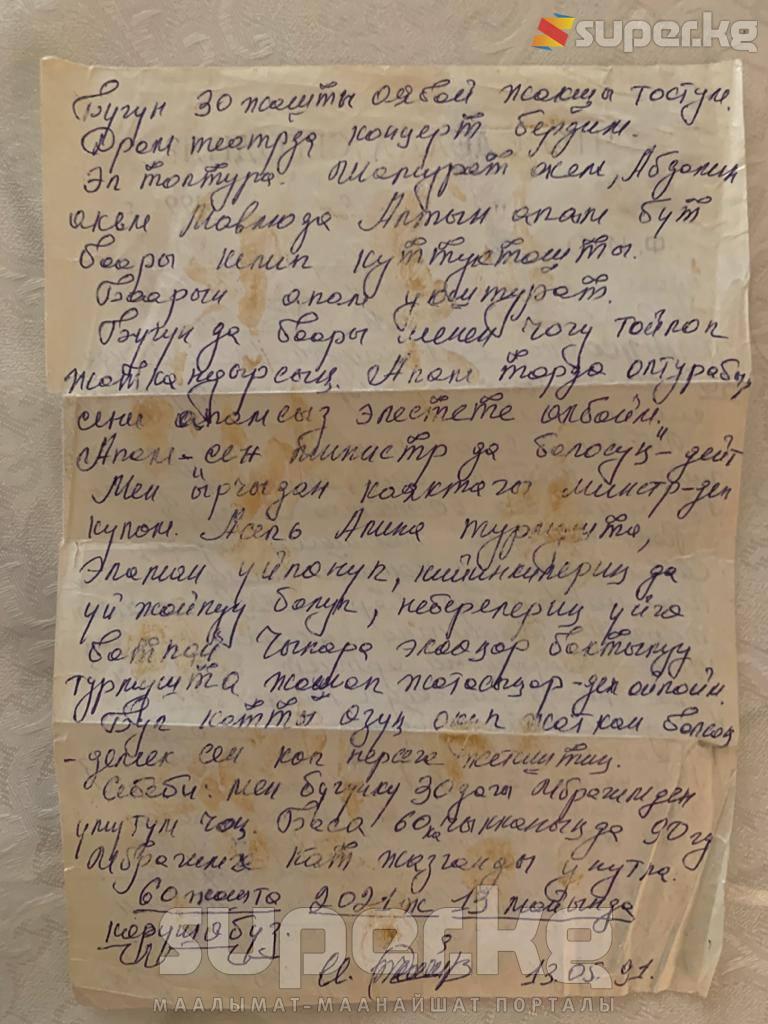 super.kg
Бүгүн 30 жашты аябай жакшы тостум.
Драм театрда концерт бердим.
Эл толтура. акем, Абдалим
акем Мавлюда Алтын апам бүт
баары келип куттукташты.
Баарын апам уюштурат.
Бүгүн да баары менен чогу тойлоп
жаткандырсың. Апам тордо олтурабы,
сени апамсыз элестете албайм.
Апам - сен министр да болосуң" - дейт
Мен "ырчыдан каяктагы министр-деп
күлөм. Асель Алина турмушта,
Эламан үйлөнүп, кийинкилериң да
үй жайлуу болуп, неберелериң үйгө
батпай Чынара экөөңөр бактылуу
турмушта жашап жатасыңар-деп ойлойм.
Бул катты өзүң окуп жаткан болсоң
- демек сен көп нерсеге жетиштиң.
Себеби: мен бүгүнкү 30 дагы Ибрагимден
үмүтүм чоң. Баса 60 ка чыкканыңда 90 гу
Ибрагимге кат жазганды унутпа.
60 жашта 2021 ж 13 майында
көрүшөбүз.
И. 13.05.91.
super.kg
МААЛЫМАТ-МААНАЙШАТ ПОРТАЛЫ